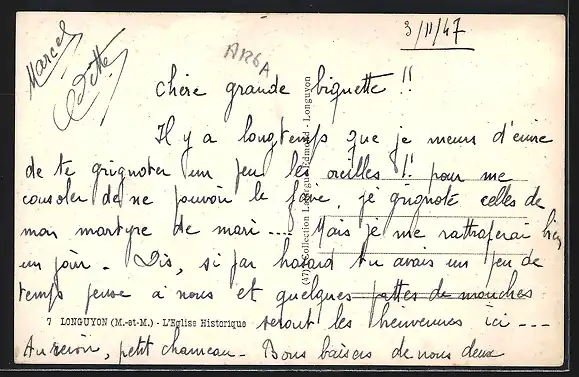 3/11/47
Marcel
Odette
A126A
chère grande biquette !!
Il y a longtemps que je meurs d'envie
de te grignoter un peu les oreilles !! pour me
consoler de ne pouvoir le faire, je grignote celles de
mon martyre de mari .... Mais je me rattraperai bien
un jour. Dis, si par hasard tu avais un peu de
temps pense à nous et quelques pattes de mouches
7 LONGUYON (M.-et-M.) - L'Eglise Historique
seront les bienvenues ici ---
Au revoir, petit chameau - Bons baisers de nous deux
(47) Collection Edmond - Longuyon